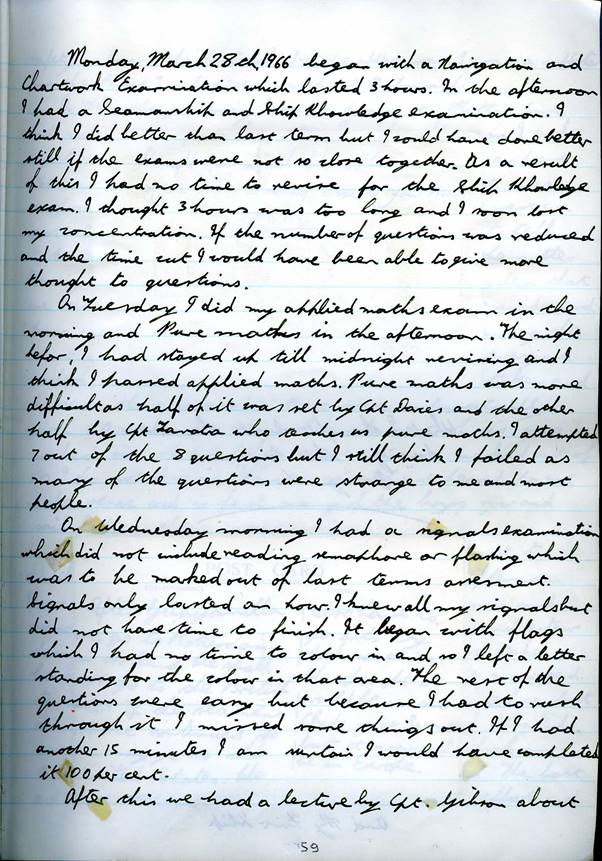 Monday, March 28th, 1966 began with a Navigation and
Chartwork Examination which lasted 3 hours. In the afternoon
I had a Seamanship and Ship Knowledge examination. I
think I did better than last term but I could have done better
still if the exams were not so close together. As a result
of this I had no time to revise for the Ship Knowledge
exam. I thought 3 hours was too long and I soon lost
my concentration. If the number of questions was reduced
and the time cut I would have been able to give more
thought to questions.
On Tuesday I did my applied maths exam in the
morning and Pure maths in the afternoon. The night
befor, I had stayed up till midnight revising and I
think I passed applied maths. Pure maths was more
difficult as half of it was set by Cpt Davies and the other
half by Cpt Zavatra who teaches us pure maths. I attempted
7 out of the 8 questions but I still think I failed as
many of the questions were strange to me and most
people.
On Wednesday morning I had a signals examination
which did not include reading semaphore or flashing which
was to be marked out of last terms assesment.
Signals only lasted an hour. I knew all my signals but
did not have time to finish. It began with flags
which I had no time to colour in and so I left a letter
standing for the colour in that area. The rest of the
questions were easy but because I had to rush
through it I missed some things out. If I had
another 15 minutes I am certain I would have completed
it 100 per cent.
After this we had a lecture by Cpt. Gibson about
59